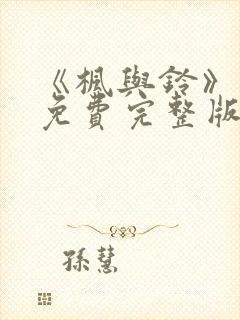 《楓與鈴》
免費完整版
孫慧